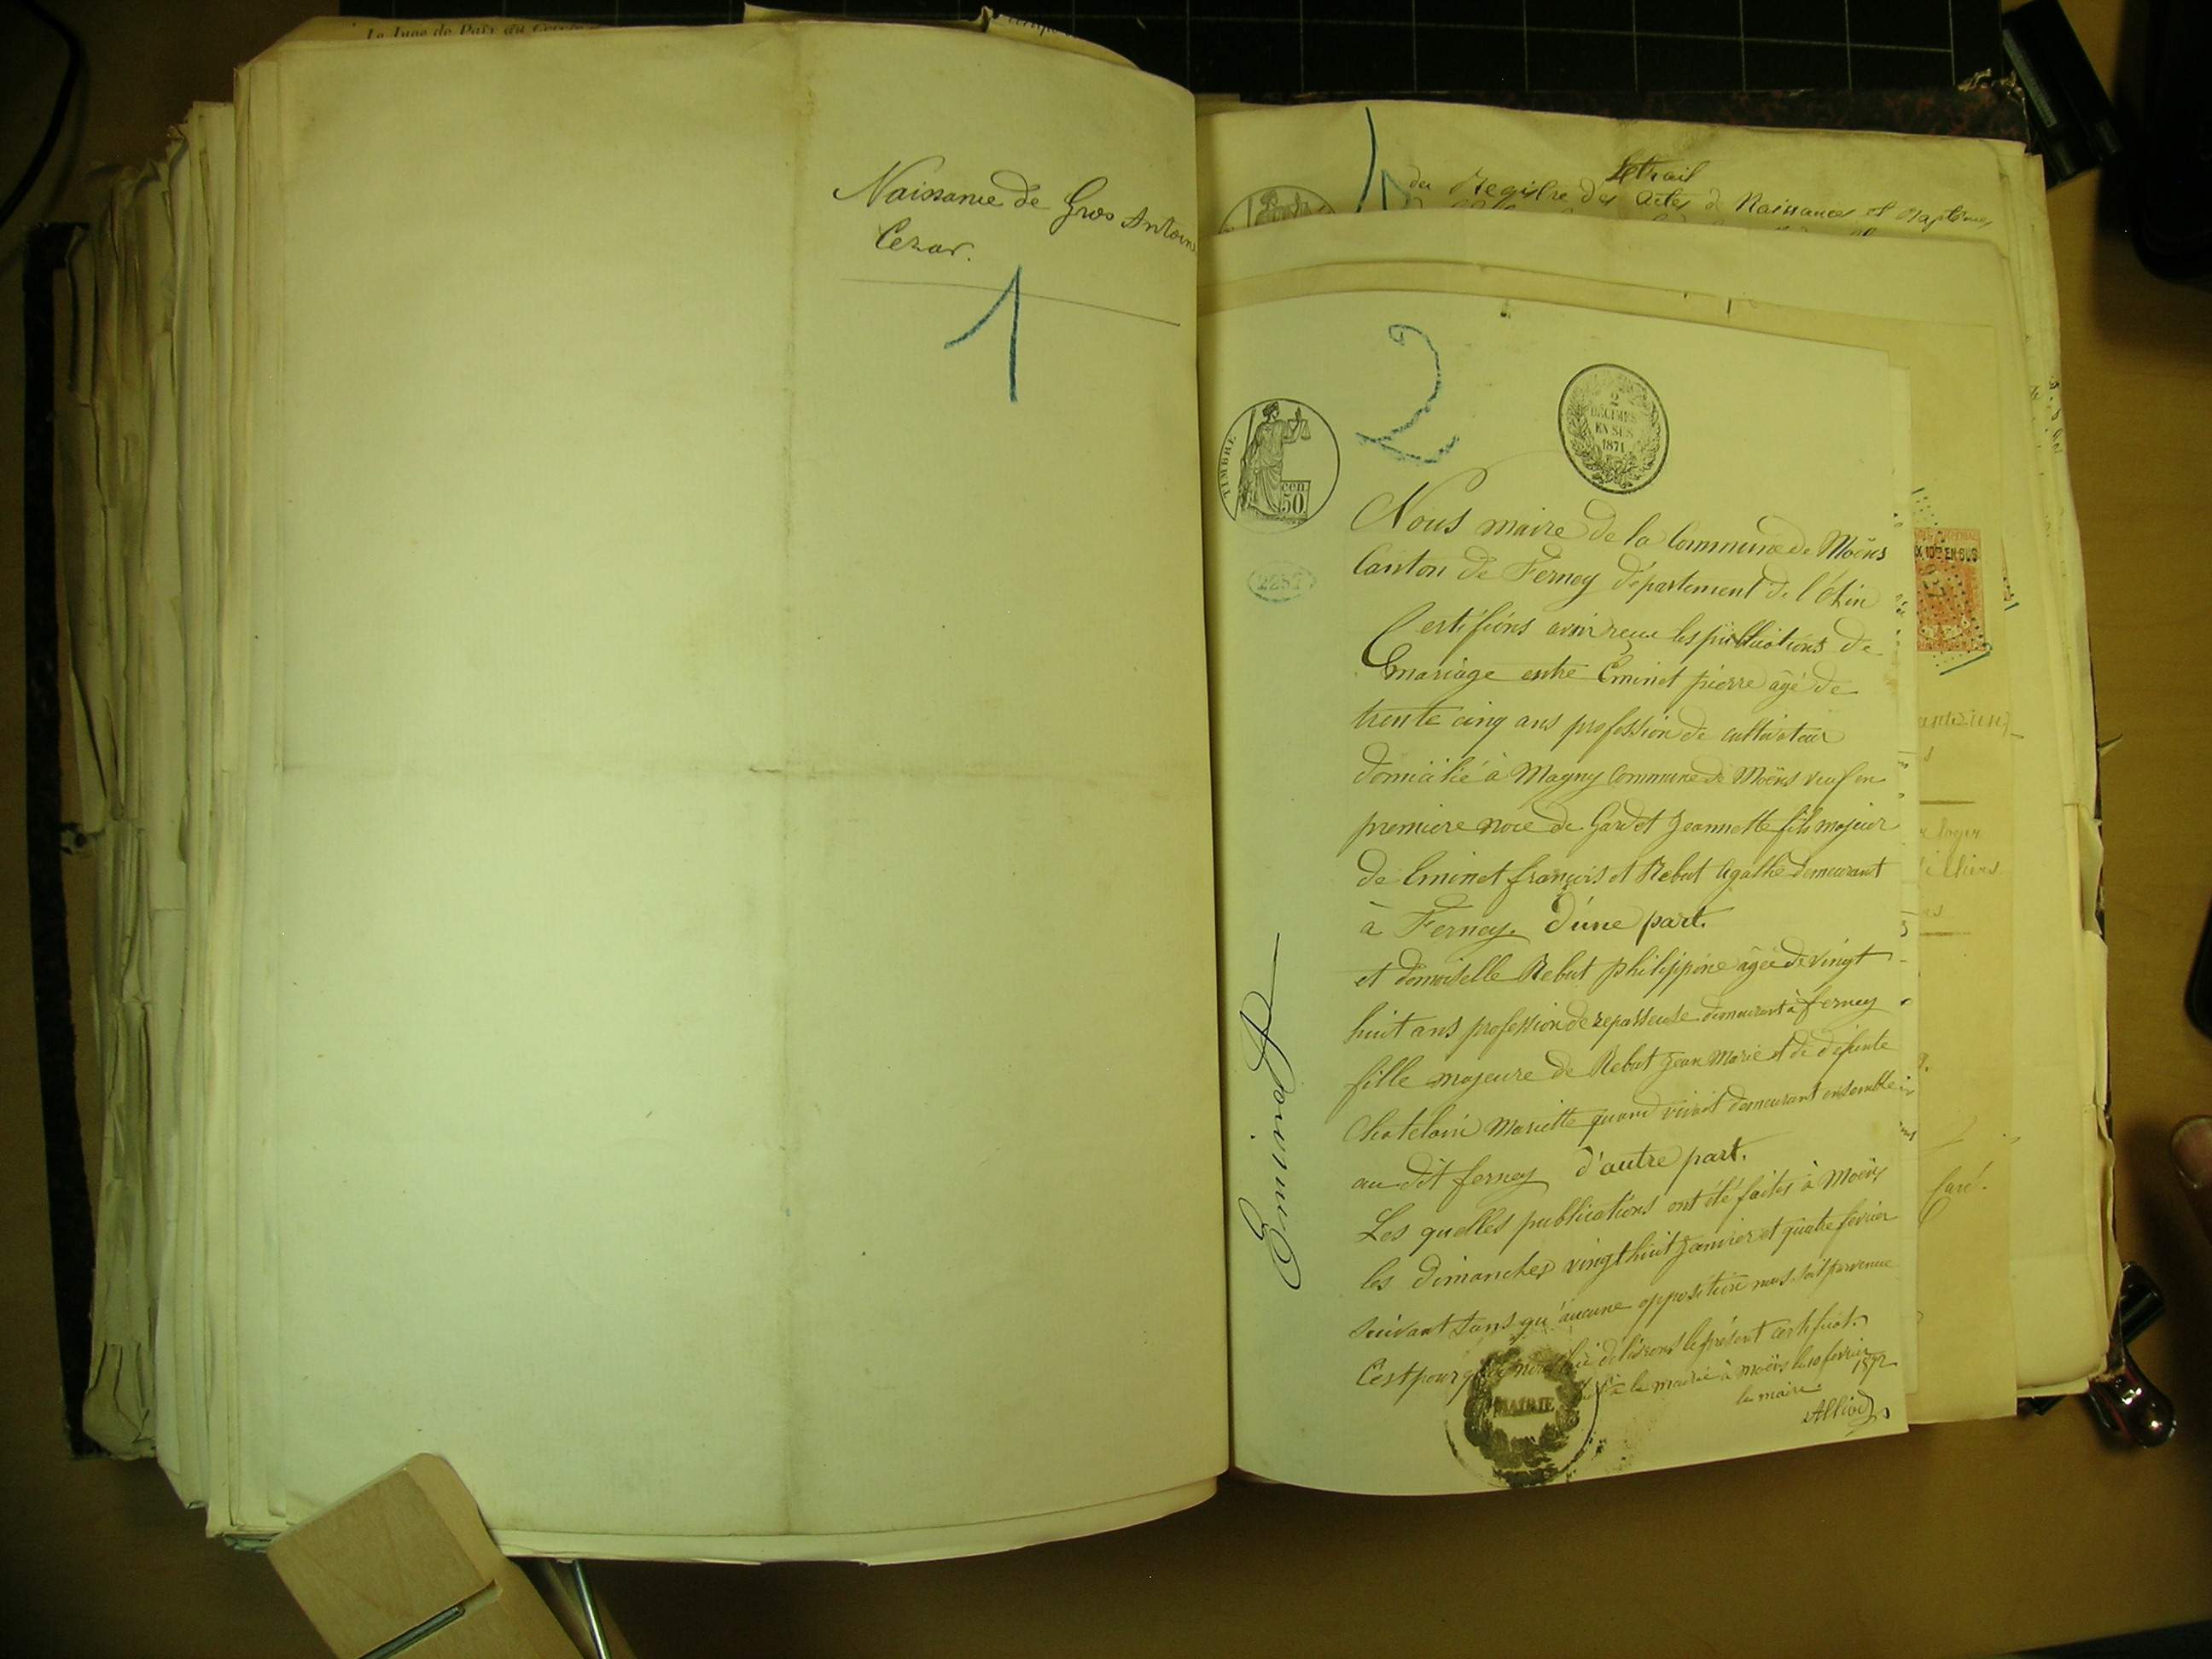 Le Juge de Paix du
Naissance de Gros Antoine
Cezar.
1
Extrait
du Registre des actes de Naissances et Baptêmes
2
TIMBRE
50 cen.
2
DÉCIMES
EN SUS
1871
2287
EN SUS
Nous maire de la Commune de Moëns
Canton de Ferney département de l'Ain
Certifions avoir reçue les publications de
mariage entre Eminet pierre âgé de
trente cinq ans profession de cultivateur
domicilié à Magny Commune de Moëns veuf en
premiere noce de Gardet Jeannette fils majeur
de Eminet françois et Rebut Agathe demeurant
à Ferney. d'une part.
et demoiselle Rebut philippine âgée de vingt
huit ans profession de repasseuse demeurant à ferney
fille majeure de Rebut Jean Marie et de défunte
Chatelain Mariette quand vivait demeurant ensemble
au dit ferney d'autre part.
Les quelles publications ont été faites à Moëns
les dimanches vingt huit Janvier et quatre fevrier
suivant sans qu'aucune opposition nous soit parvenue
C'est pourquoi nous délivrons le présent certificat.
la mairie à Moëns le 10 fevrier
1872
le maire
Alliod
MAIRIE
Eminet P